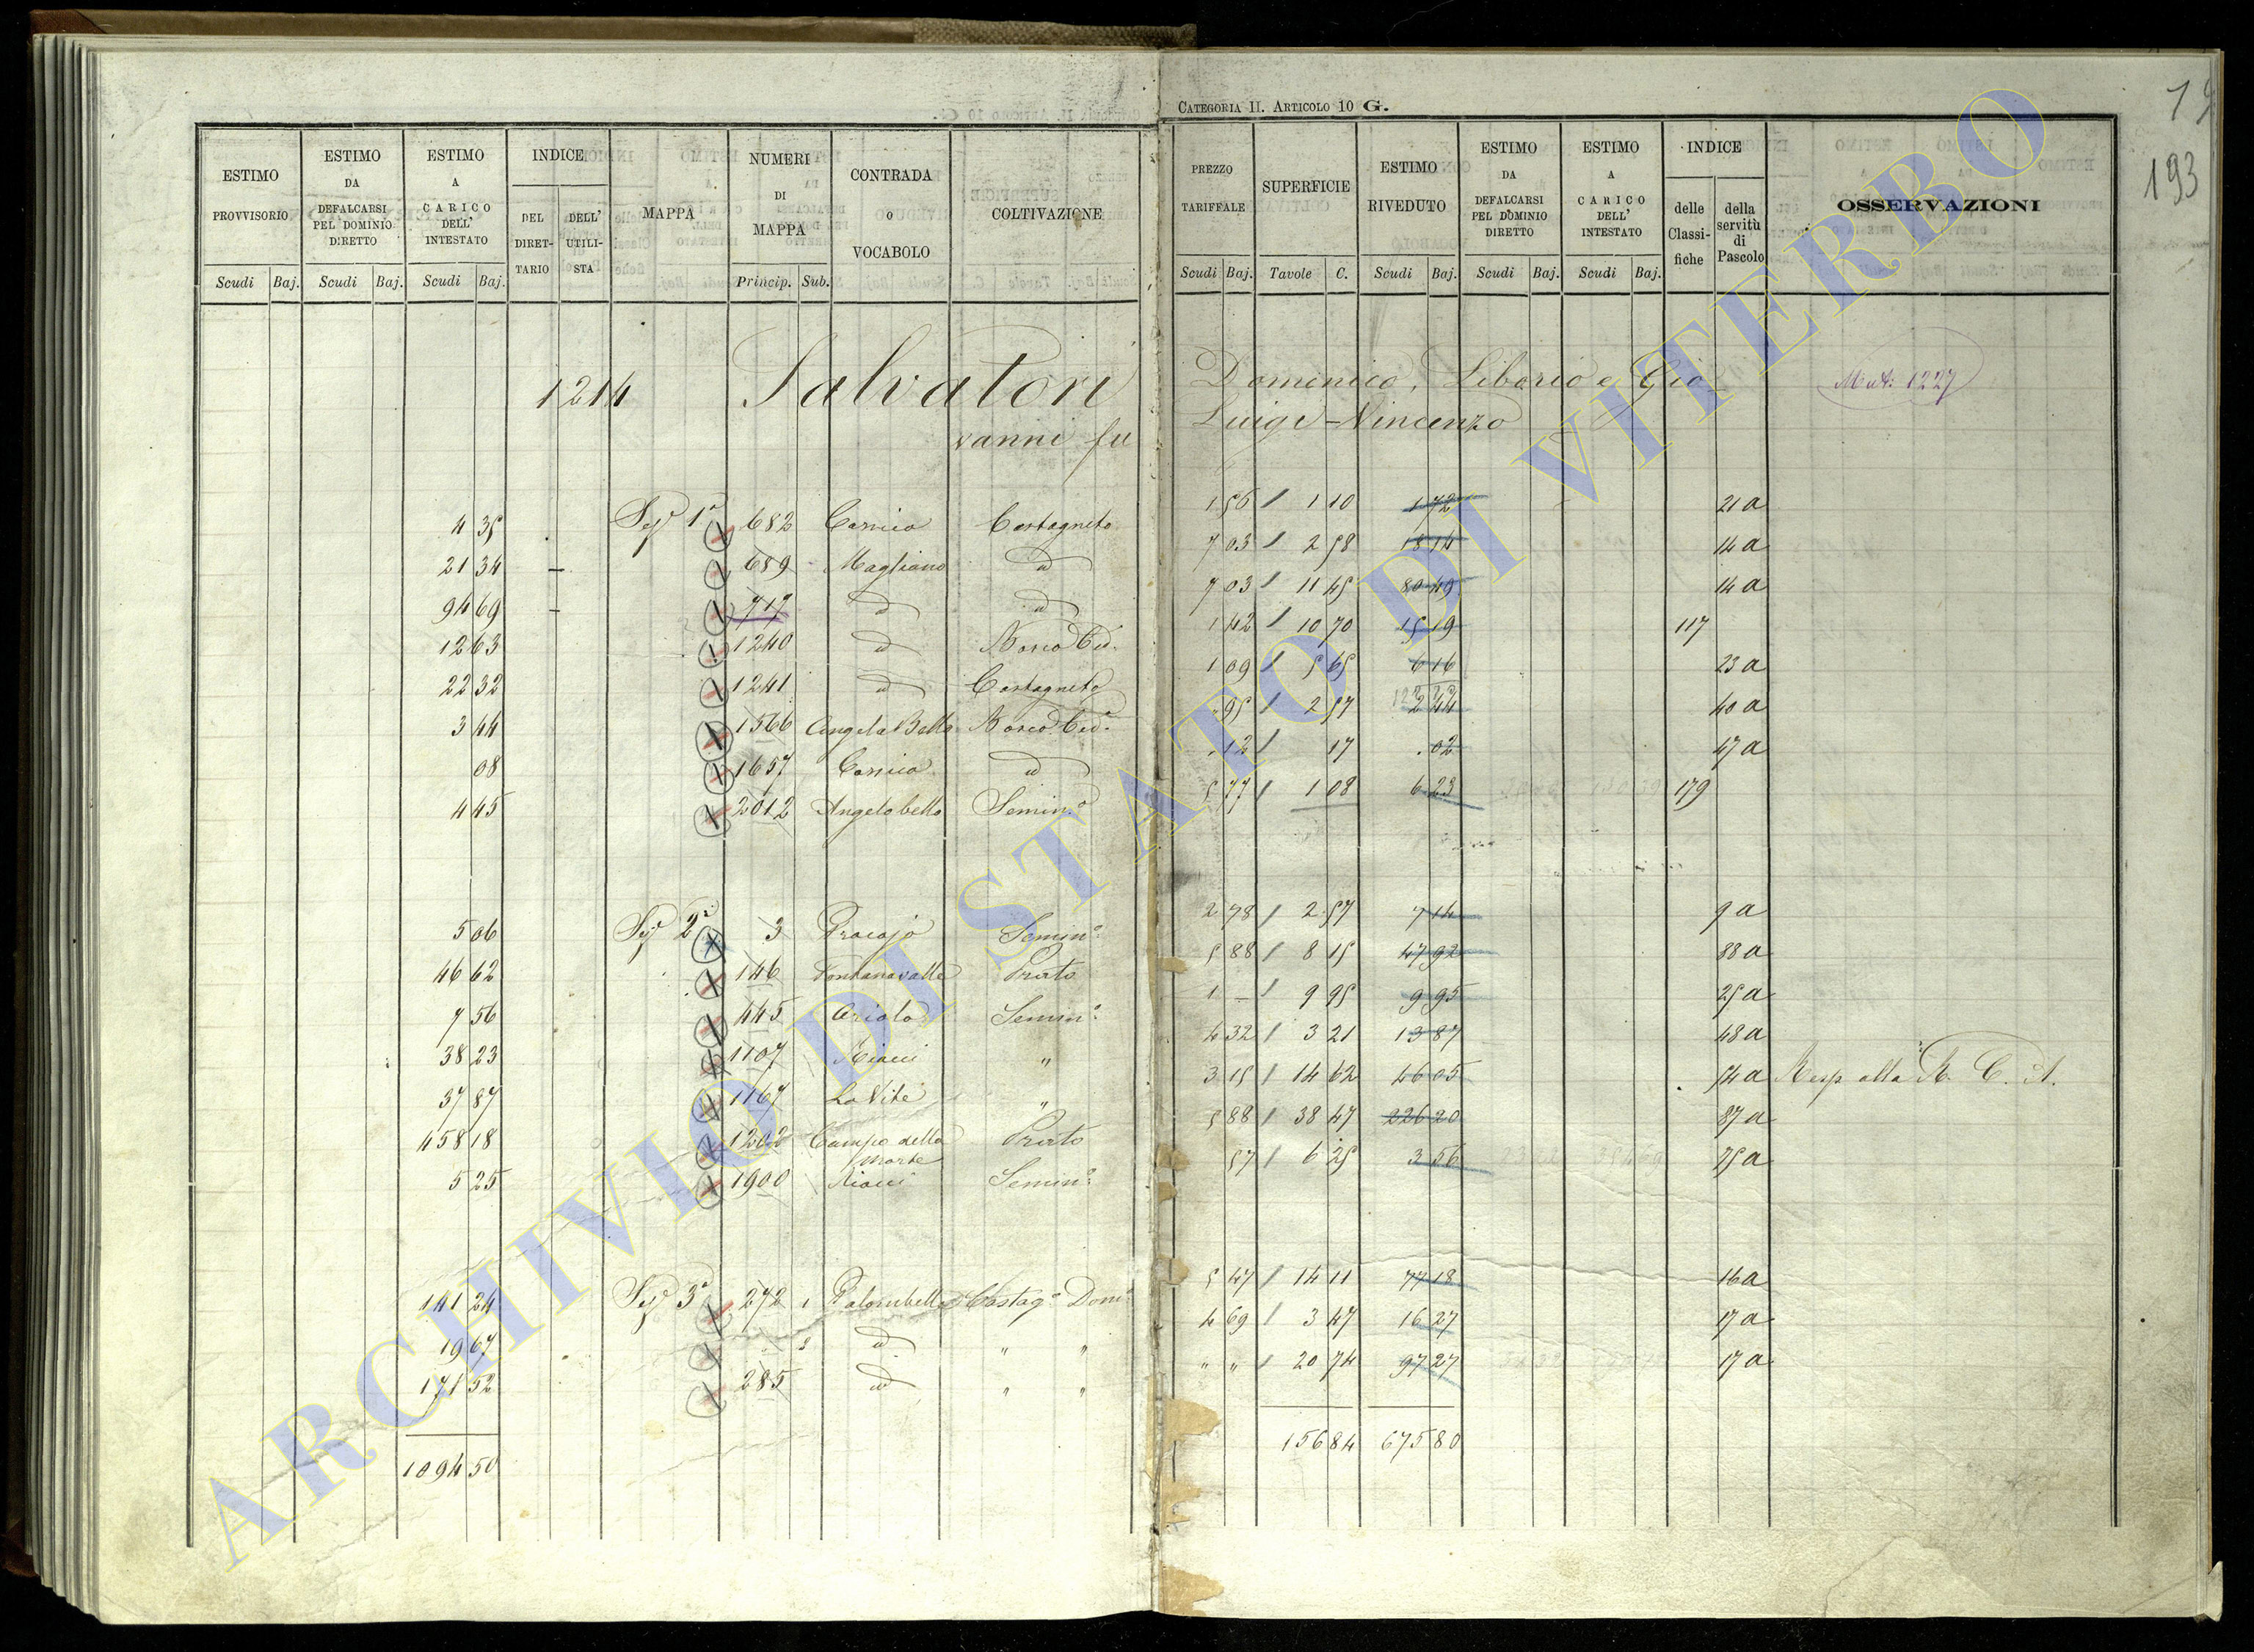 CATEGORIA II. ARTICOLO 10 G.
193
ESTIMO PROVVISORIO Scudi Baj.
ESTIMO DA DEFALCARSI PEL DOMINIO DIRETTO Scudi Baj.
ESTIMO A CARICO DELL' INTESTATO Scudi Baj.
INDICE DEL DIRETTARIO DELL' UTILISTA
MAPPA
NUMERI DI MAPPA Princip. Sub.
CONTRADA o VOCABOLO
COLTIVAZIONE
PREZZO TARIFFALE Scudi Baj.
SUPERFICIE Tavole C.
ESTIMO RIVEDUTO Scudi Baj.
ESTIMO DA DEFALCARSI PEL DOMINIO DIRETTO Scudi Baj.
ESTIMO A CARICO DELL' INTESTATO Scudi Baj.
INDICE delle Classifiche della servitù di Pascolo
OSSERVAZIONI
1214 Salvatori Domenico, Liborio e Gio Mut: 1227
vanni fu Luigi-Vincenzo
4 35 Sez 1ª 682 Castagneto 1 56 1 10 1 72 21 a
21 34 689 Magliano id 7 03 2 58 18 14 14 a
94 69 717 id id 7 03 11 45 80 49 14 a
12 63 1240 id Bosco Ced. 1 42 10 70 15 19 117
22 32 1241 id Castagneto 1 09 5 65 6 16 23 a
3 44 1566 Angela Bella Bosco Ced. 95 2 57 2 44 40 a
08 1657 id 12 17 . 02 47 a
4 45 2012 Angelabella Semin.º 5 77 1 08 6 23 179
5 06 Sez 2ª 3 Procojo Semin.º 2 78 2 57 7 14 9 a
46 62 146 Fontanavalle Prato 5 88 8 15 47 92 88 a
7 56 445 Semin.º 1 – 9 95 9 95 25 a
38 23 1107 " 4 32 3 21 13 87 48 a
37 87 1167 La Vite " 3 15 14 62 46 05 54 a Resp. alla R. C. A.
458 18 1202 Campo della Morte Prato 5 88 38 47 226 20 87 a
5 25 1900 Semin.º 57 6 25 3 56 25 a
141 24 Sez 3ª 272 1 Palombella Castag.º Dom.º 5 47 14 11 77 18 16 a
19 67 2 id " " 4 69 3 47 16 27 17 a
171 52 285 id " " " " 20 74 97 27 17 a
1094 50 156 84 675 80
ARCHIVIO DI STATO DI VITERBO